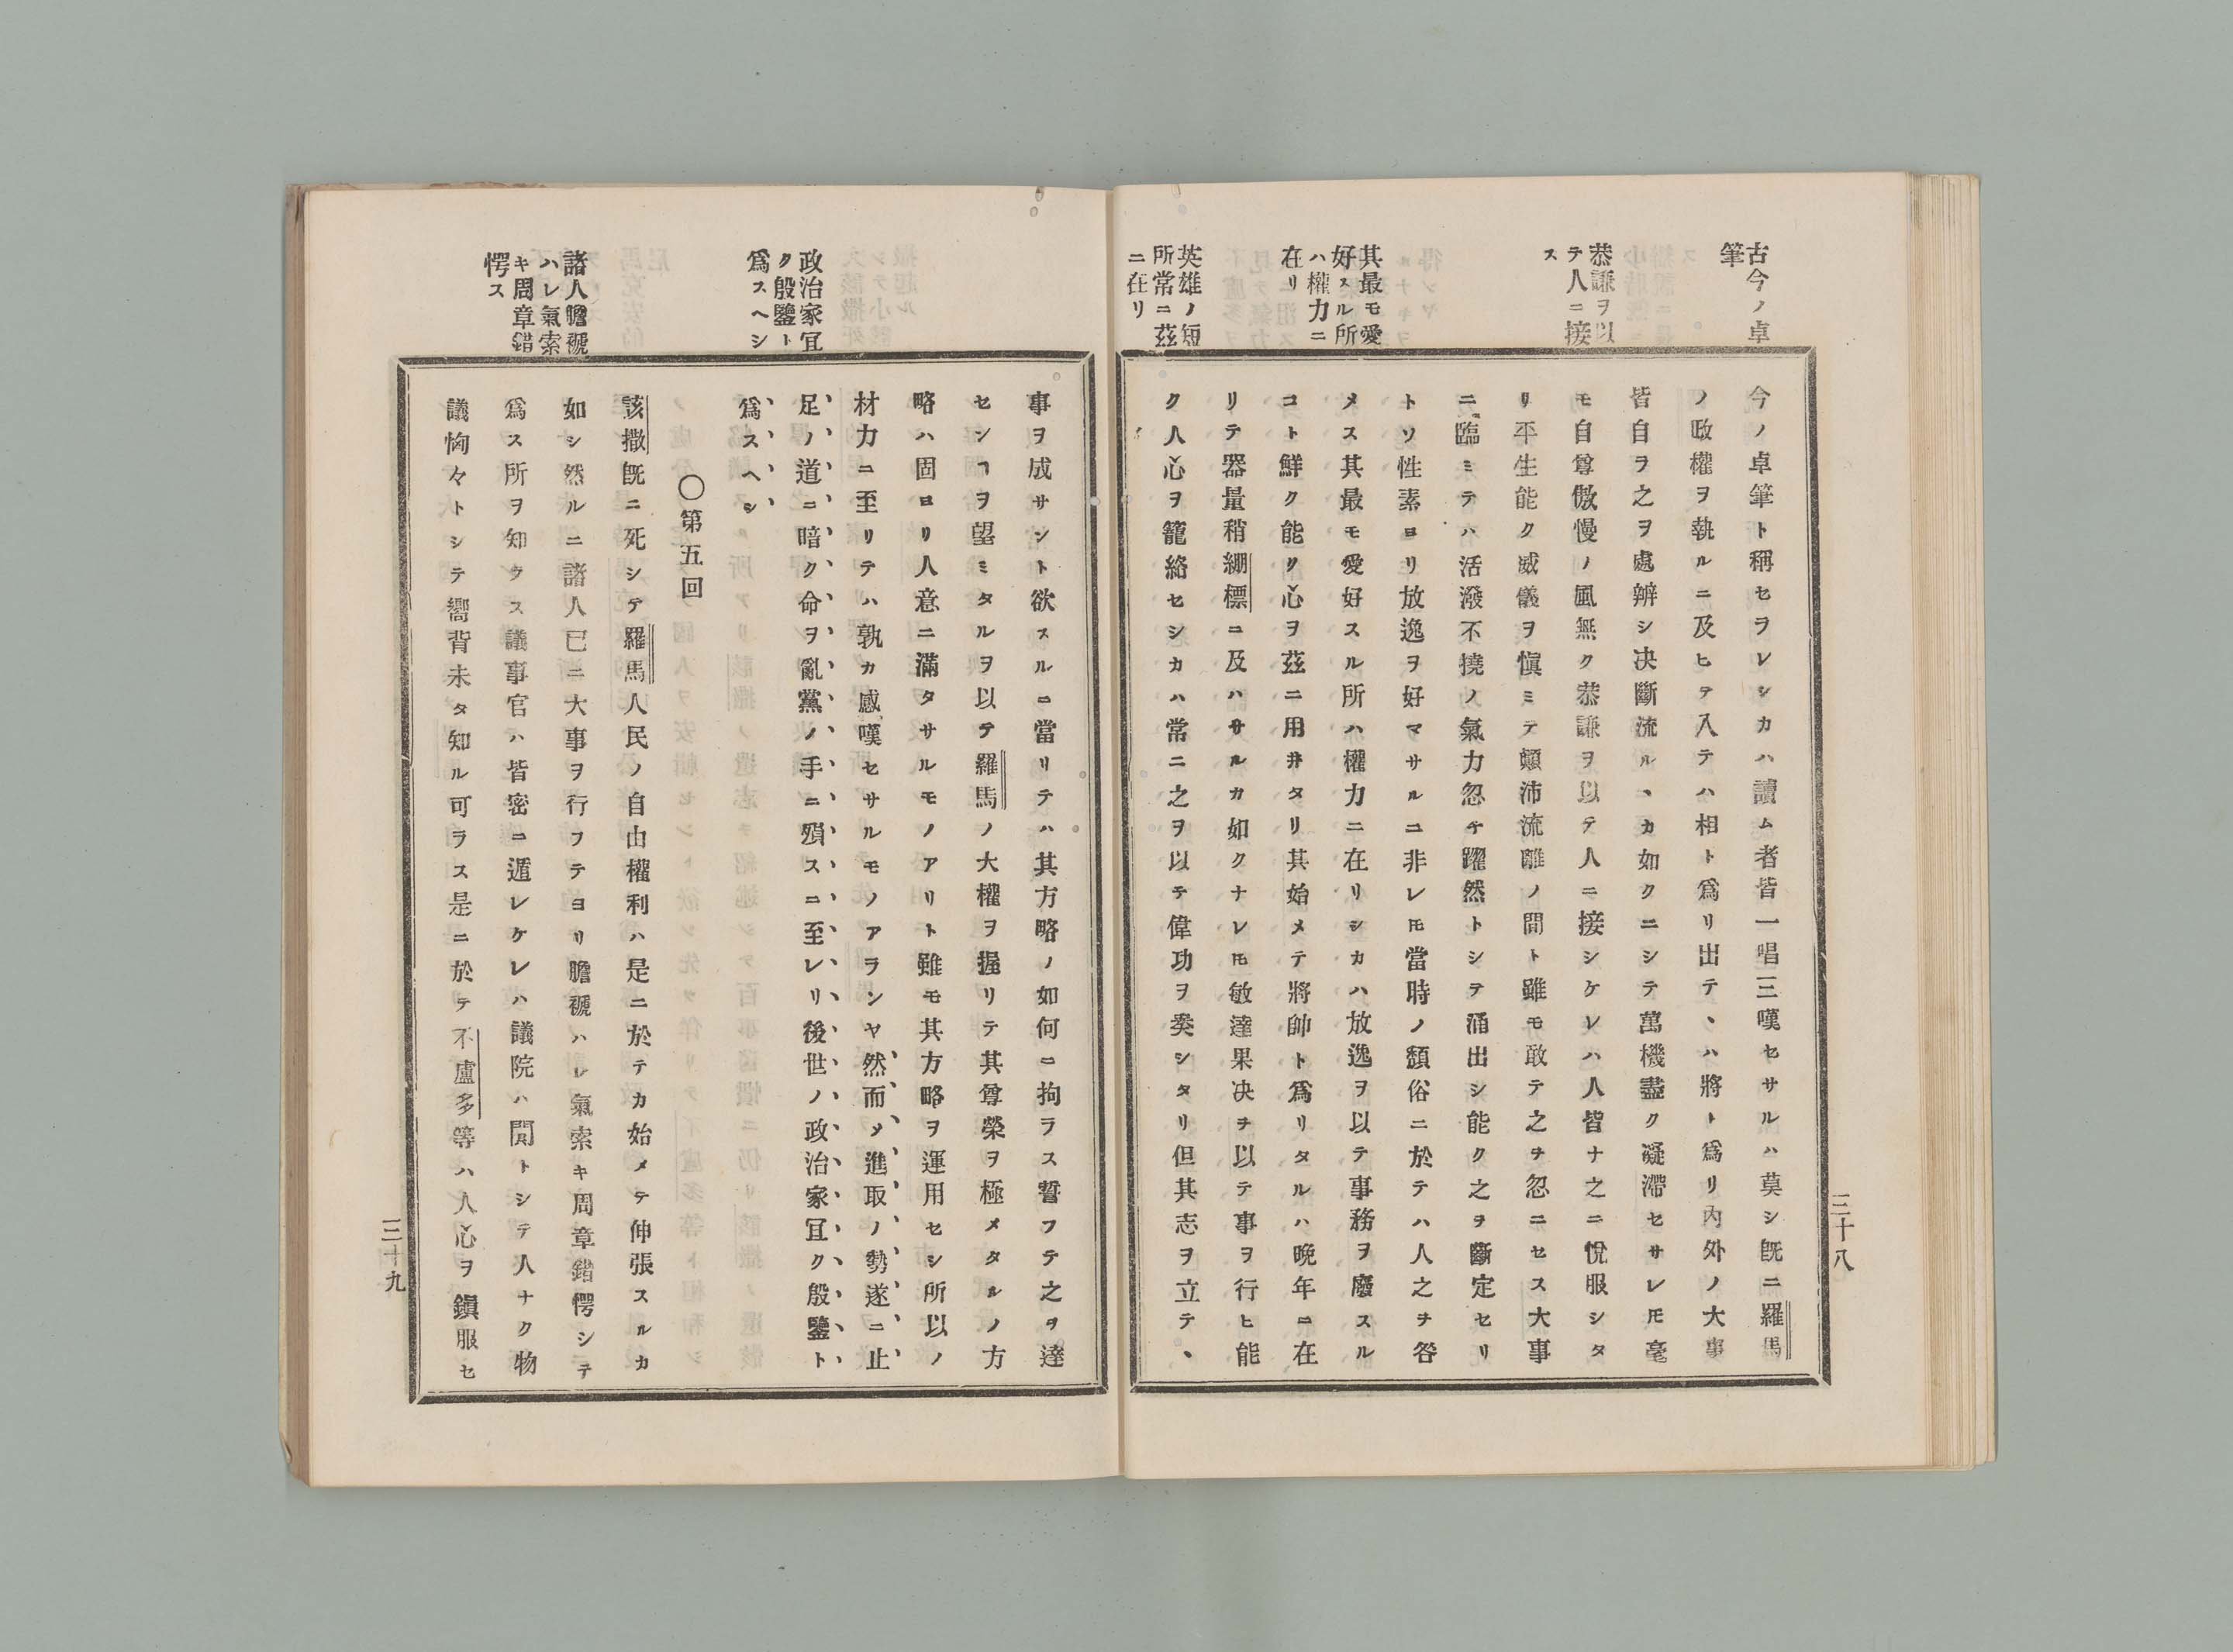 古今ノ卓
筆
恭謙ヲ以
テ人ニ接
ス
其最モ愛
好スル所
ハ權力ニ
在リ
英雄ノ短
所常ニ茲
ニ在リ
今ノ卓筆ト稱セヲレシカハ讀ム者皆一唱三嘆セサルハ莫シ既ニ羅馬
ノ政權ヲ執ルニ及ヒテ入テハ相ト爲リ出テヽハ將ト爲リ內外ノ大事
皆自ヲ之ヲ處辨シ决斷流ルヽカ如クニシテ萬機盡ク凝滯セサレㇳモ毫
モ自尊傲慢ノ風無ク恭謙ヲ以テ人ニ接シケレハ人皆ナ之ニ悅服シタ
リ平生能ク威儀ヲ愼ミテ顚沛流離ノ間ト雖モ敢テ之ヲ忽ニセス大事
ニ臨ミテハ活潑不撓ノ氣力忽チ躍然トシテ涌出シ能ク之ヲ斷定セリ
トソ性素ヨリ放逸ヲ好マサルニ非レㇳモ當時ノ頽俗ニ於テハ人之ヲ咎
メス其最モ愛好スル所ハ權力ニ在リシカハ放逸ヲ以テ事務ヲ廢スル
コト鮮ク能ク心ヲ茲ニ用井タリ其始メテ將帥ト爲リタルハ晩年ニ在
リテ器量稍綳標ニ及ハサルカ如クナレㇳモ敏達果决ヲ以テ事ヲ行ヒ能
ク人心ヲ籠絡セシカハ常ニ之ヲ以テ偉功ヲ奏シタリ但其志ヲ立テヽ
三十八
政治家冝
ク殷鑒ト
爲スヘシ
諸人膽褫
ハレ氣索
キ周章錯
愕ス
事ヲ成サント欲スルニ當リテハ其方略ノ如何ニ拘ラス誓フテ之ヲ達
センヿヲ望ミタルヲ以テ羅馬ノ大權ヲ握リテ其尊榮ヲ極メタルノ方
略ハ固ヨリ人意ニ滿タサルモノアリト雖モ其方略ヲ運用セシ所以ノ
材力ニ至リテハ孰カ感嘆セサルモノアランヤ然而メ進取ノ勢遂ニ止
足ノ道ニ暗ク命ヲ亂黨ノ手ニ殞スニ至レリ後世ノ政治家冝ク殷鑒ト
爲スヘシ
〇第五回
該撒旣ニ死シテ羅馬人民ノ自由權利ハ是ニ於テカ始メテ伸張スルカ
如シ然ルニ諸人已ニ大事ヲ行フテヨリ膽褫ハレ氣索キ周章錯愕シテ
爲ス所ヲ知ラス議事官ハ皆密ニ遁レケレハ議院ハ闃トシテ人ナク物
議恟々トシテ嚮背未タ知ル可ラス是ニ於テ不盧多等ハ人心ヲ鎭服セ
三十九